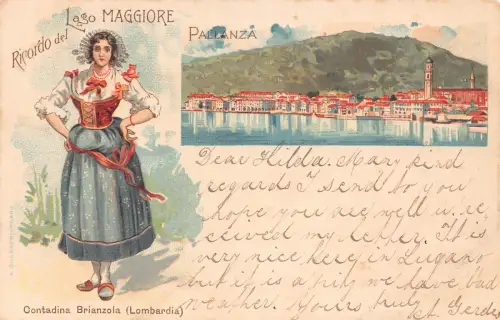 Ricordo del Lago MAGGIORE
PALLANZA
Dear Hilda. Many kind
regards I send to you
hope you are well u. re-
ceived my letter. It is
very nice keep in Lugano
but it is a pity we have bad
weather. Yours truly
Contadina Brianzola (Lombardia)